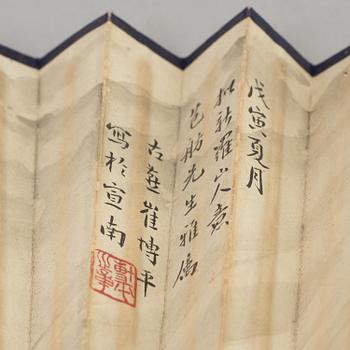 戊寅夏月
拟新羅山人意
舫先生雅属
古燕崔博平
寫於宣南